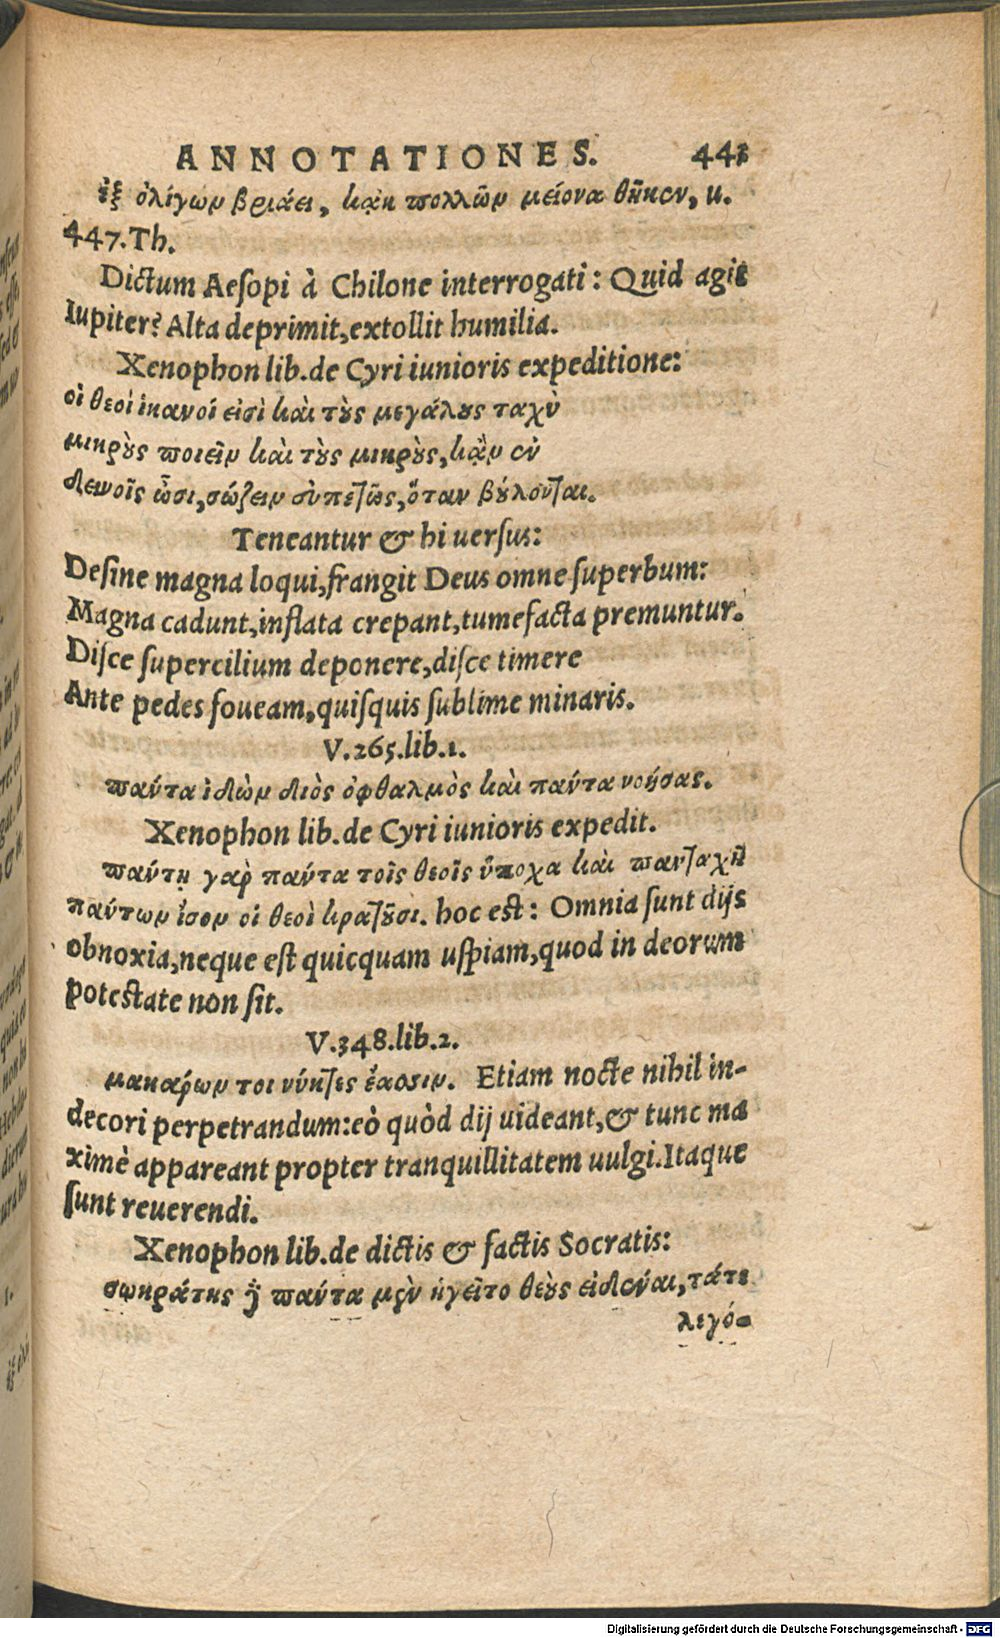 ANNOTATIONES. 443
ἐξ ὀλίγων βριάει, κἀκ πολλῶν μείονα θῆκεν, u.
447.Th.
Dictum Aeſopi à Chilone interrogati: Quid agit
Iupiter? Alta deprimit, extollit humilia.
Xenophon lib. de Cyri iunioris expeditione:
οἱ θεοὶ ἱκανοί εἰσὶ καὶ τοὺς μεγάλους ταχὺ
μικροὺς ποιεῖν καὶ τοὺς μικροὺς, κἂν ἐν
δεινοῖς ὦσι, σώζειν εὐπετῶς, ὅταν βούλονται.
Teneantur & hi uerſus:
Deſine magna loqui, frangit Deus omne ſuperbum:
Magna cadunt, inflata crepant, tumefacta premuntur.
Diſce ſupercilium deponere, diſce timere
Ante pedes foueam, quiſquis ſublime minaris.
V.265.lib.1.
πάντα ἰδὼν διὸς ὀφθαλμὸς καὶ πάντα νοήσας.
Xenophon lib. de Cyri iunioris expedit.
πάντη γὰρ πάντα τοῖς θεοῖς ὕποχα καὶ πανταχῆ
πάντων ἴσον οἱ θεοὶ κρατοῦσι. hoc est: Omnia ſunt dijs
obnoxia, neque est quicquam uſpiam, quod in deorum
potestate non ſit.
V.348.lib.2.
μακάρων τοι νύκτες ἔασιν. Etiam nocte nihil in-
decori perpetrandum: eò quòd dij uideant, & tunc ma
ximè appareant propter tranquillitatem uulgi. Itaque
ſunt reuerendi.
Xenophon lib. de dictis & factis Socratis:
σωκράτης δὲ πάντα μὲν ἡγεῖτο θεοὺς εἰδέναι, τάτε
λεγό-
Digitalisierung gefördert durch die Deutsche Forschungsgemeinschaft - DFG